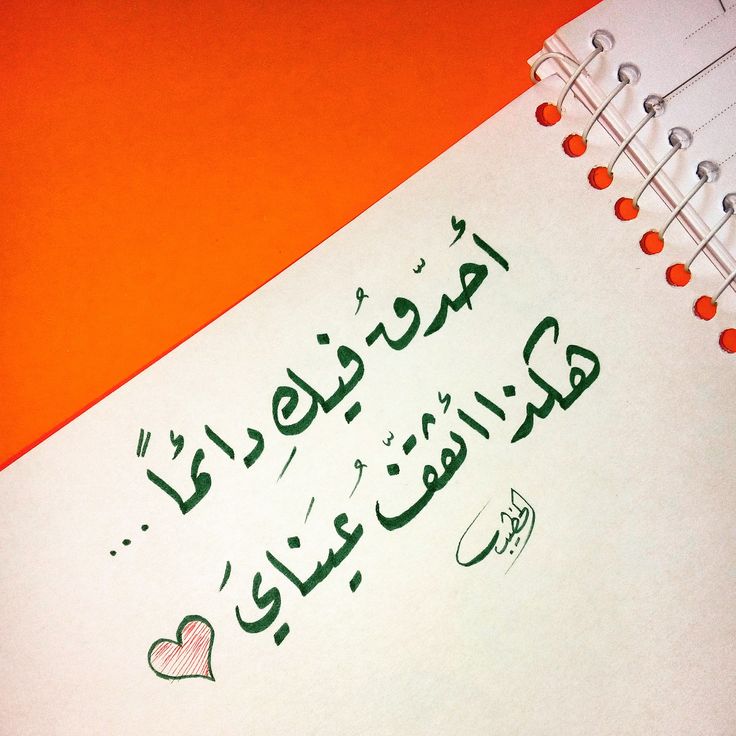 أحدّقُ فيكِ دائماً ...
هكذا أثقّفُ عَينايَ
الخطيب